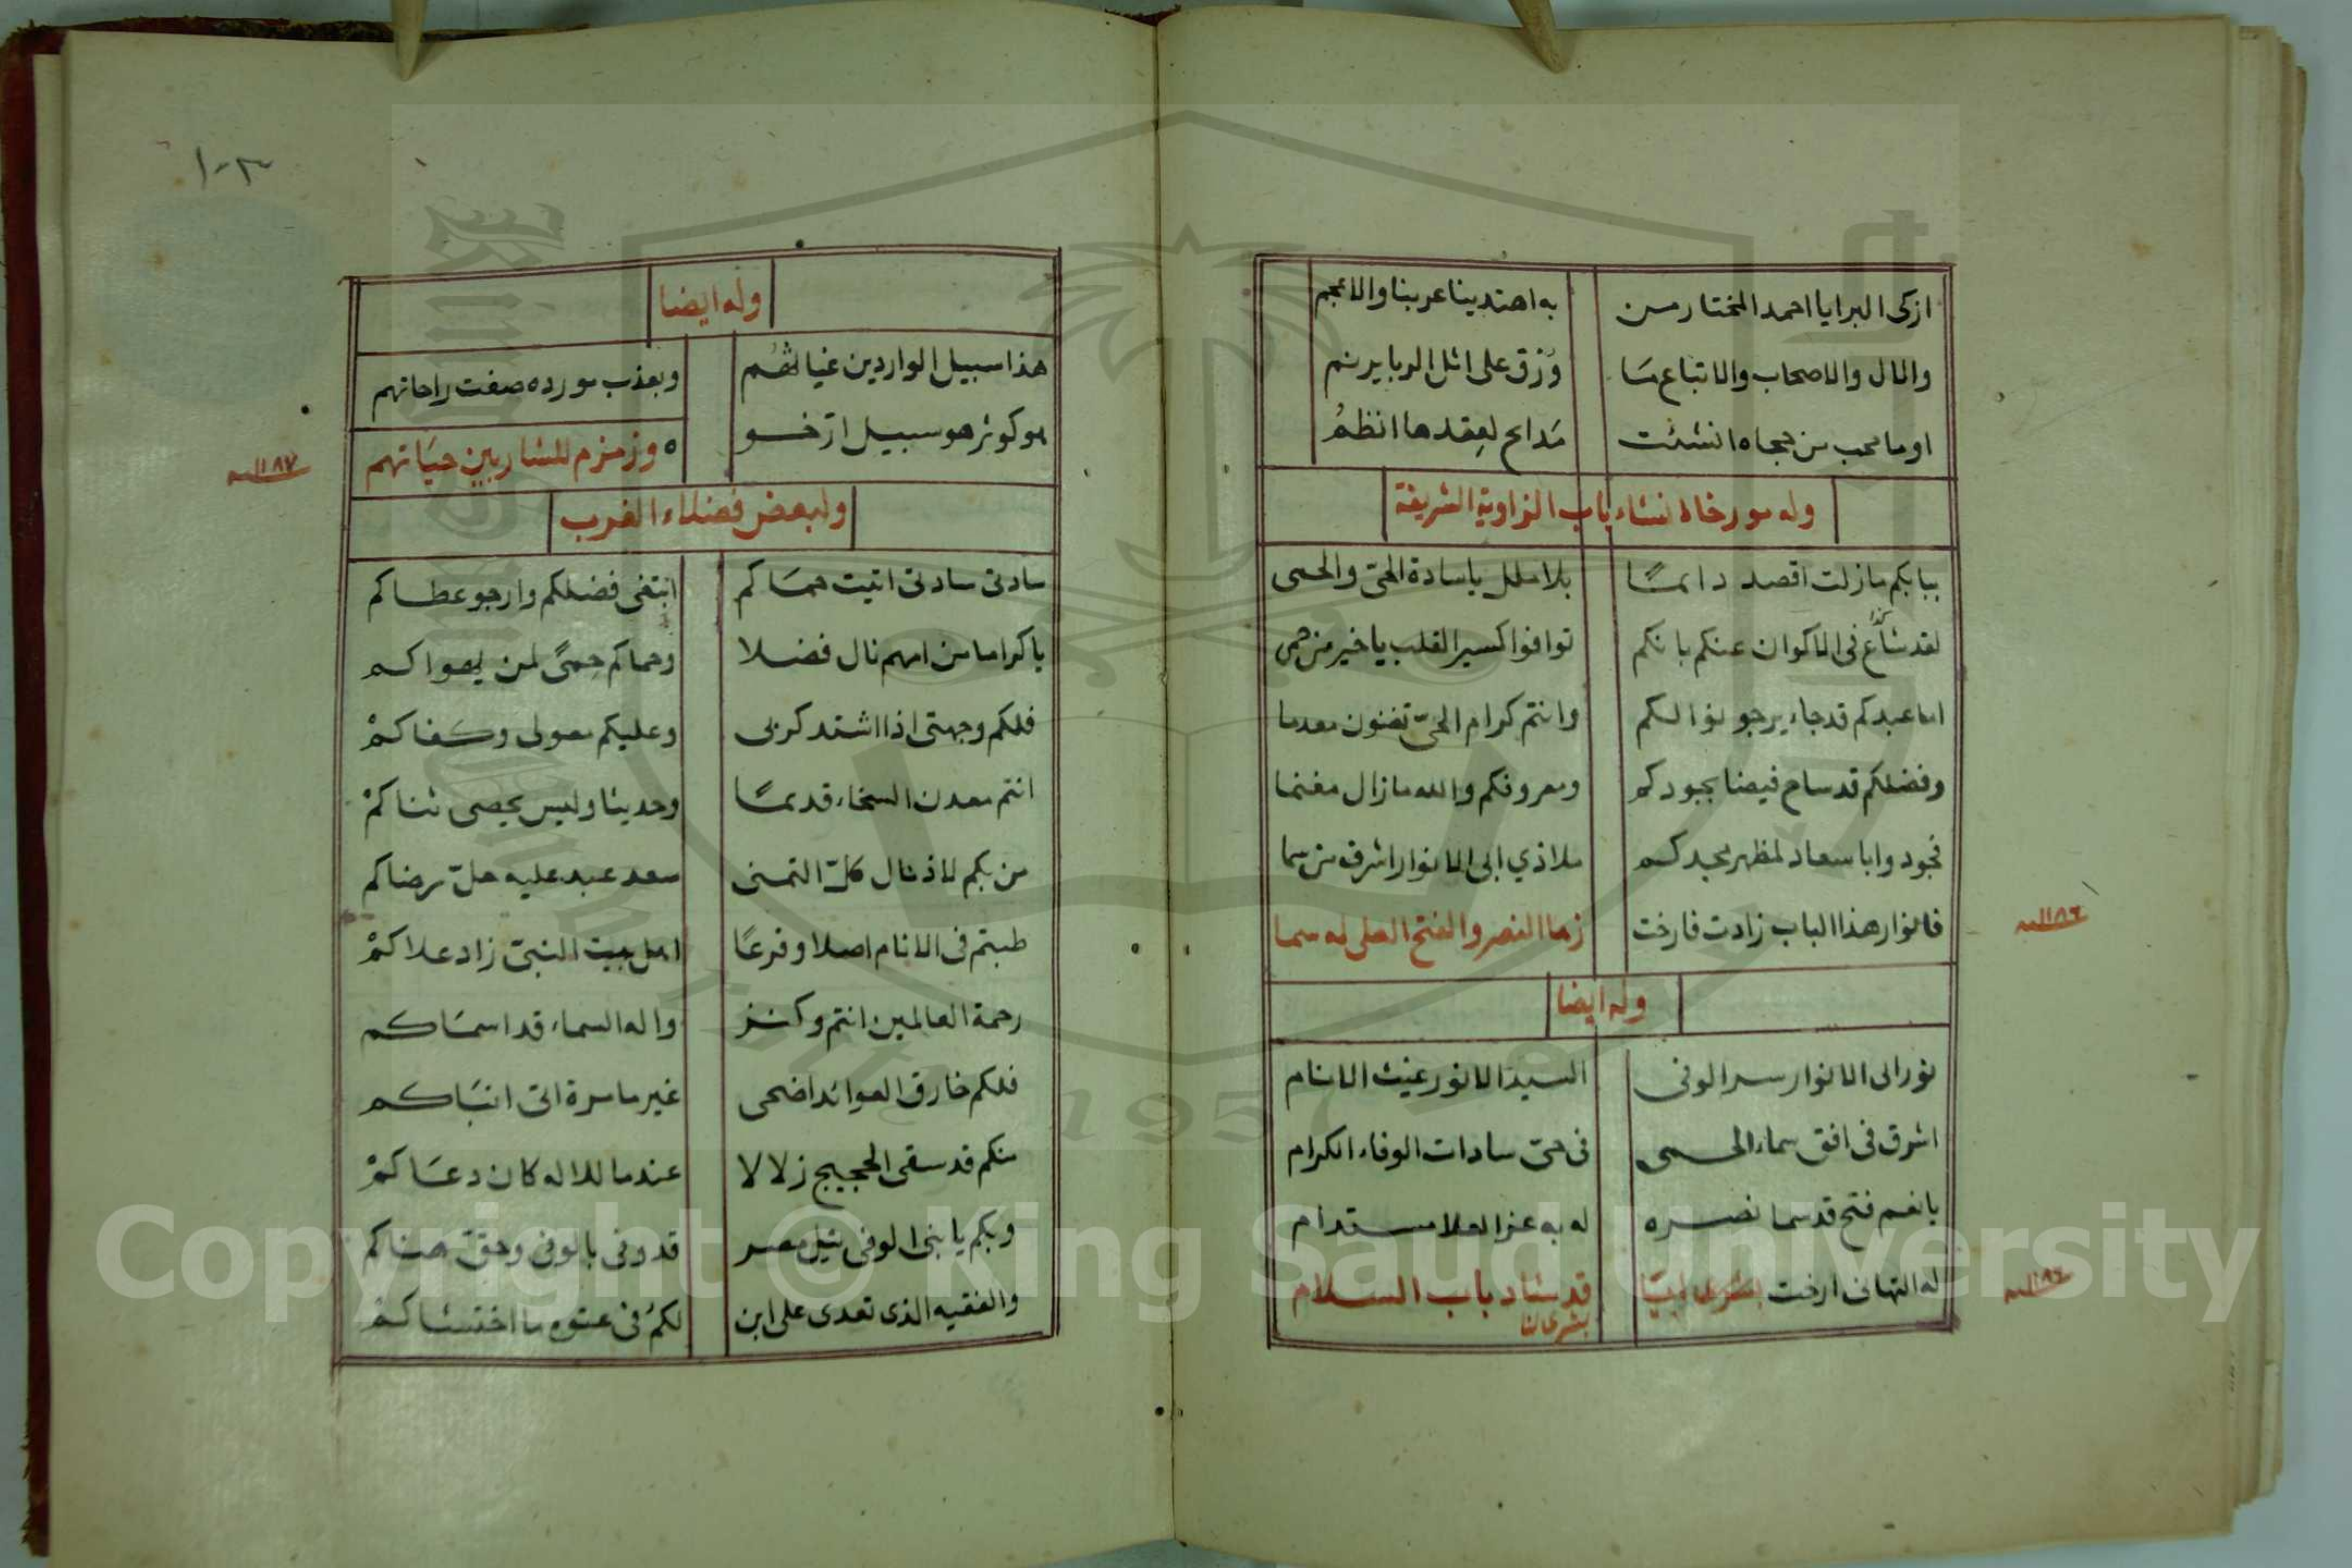 ازكى البرايا احمد المختار من به اهتدينا عربنا والاعجم
والال والاصحاب والاتباع مَا وُرْق على اثل الربا يرنم
او ما محب من حجاه انشئت مَدائح لعِقدها انظمُ
وله مورخا لانشاء باب الزاوية الشريفة
ببابكم مازلت اقصد دائمًا بلا ملل ياسادة الحيّ والحمى
لقد شاع فى الاكوان عنكم بانكم توافوا كسير القلب ياخير من حمى
اما عبدكم قد جاء يرجو نوالكم وانتم كرام الحيّ تغنون معدما
وفضلكم قد ساح فيضا بجودكم ومعروفكم والله مازال مغنما
فجودوا ابا سعاد لمظهر مجدكم ملاذي ابى الانوار اشرف من سما
فانوار هذا الباب زادت فارخت زها النصر والفتح العلى له سما
١١٨٦ سنه
وله ايضا
نور ابى الانوار سر الوفى السيد الانور غيث الانام
اشرق فى افق سماء الحمى فى حيّ سادات الوفاء الكرام
يا نعم فتح قد سما نصره له به عز العلا مستدام
له التهانى ارخت قد شاد باب السلام
بشرى لنا
١١٨٦ سنه
١٠٣
وله ايضا
هذا سبيل الواردين غياثهُم وبعذب مورده صفت راحاتهم
هو كوثر هو سبيل ارّخو ه وزمزم للشاربين حيَاتهم
١١٨٧ سنه
ولبعض فضلاء الغرب
سادتى سادتى اتيت حمَاكم ابتغى فضلكم وارجو عطاكم
يا كراما من امهم نال فضلا وحماكم حِمىً لمن يهواكم
فلكم وجهتى اذا اشتد كربى وعليكم معولى وكفاكمْ
انتم معدن السخاء قديمًا وحديثا وليس يحصى ثناكمْ
من بكم لاذ نال كلّ التمنى سعد عبد عليه حلّ رضاكم
طبتم فى الانام اصلا وفرعًا اهل بيت النبىّ زاد علاكمْ
رحمة العالمين انتم وكنز واله السماء قد اسمَاكم
فلكم خارق العوائد اضحى غير ما مرة اتى انبَاكم
منكم قد سقى الحجيج زلالا عندما للاله كان دعَاكمْ
وبكم يا بنى الوفى نيل مصر قد وفى بالوفى وحقّ هناكم
والفقيه الذى تعدى على ابن لكمُ فى عتوه ما اختشاكمْ